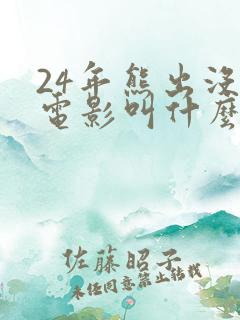 24年熊出没
電影叫什麽
佐藤昭子
未任同意禁止转载